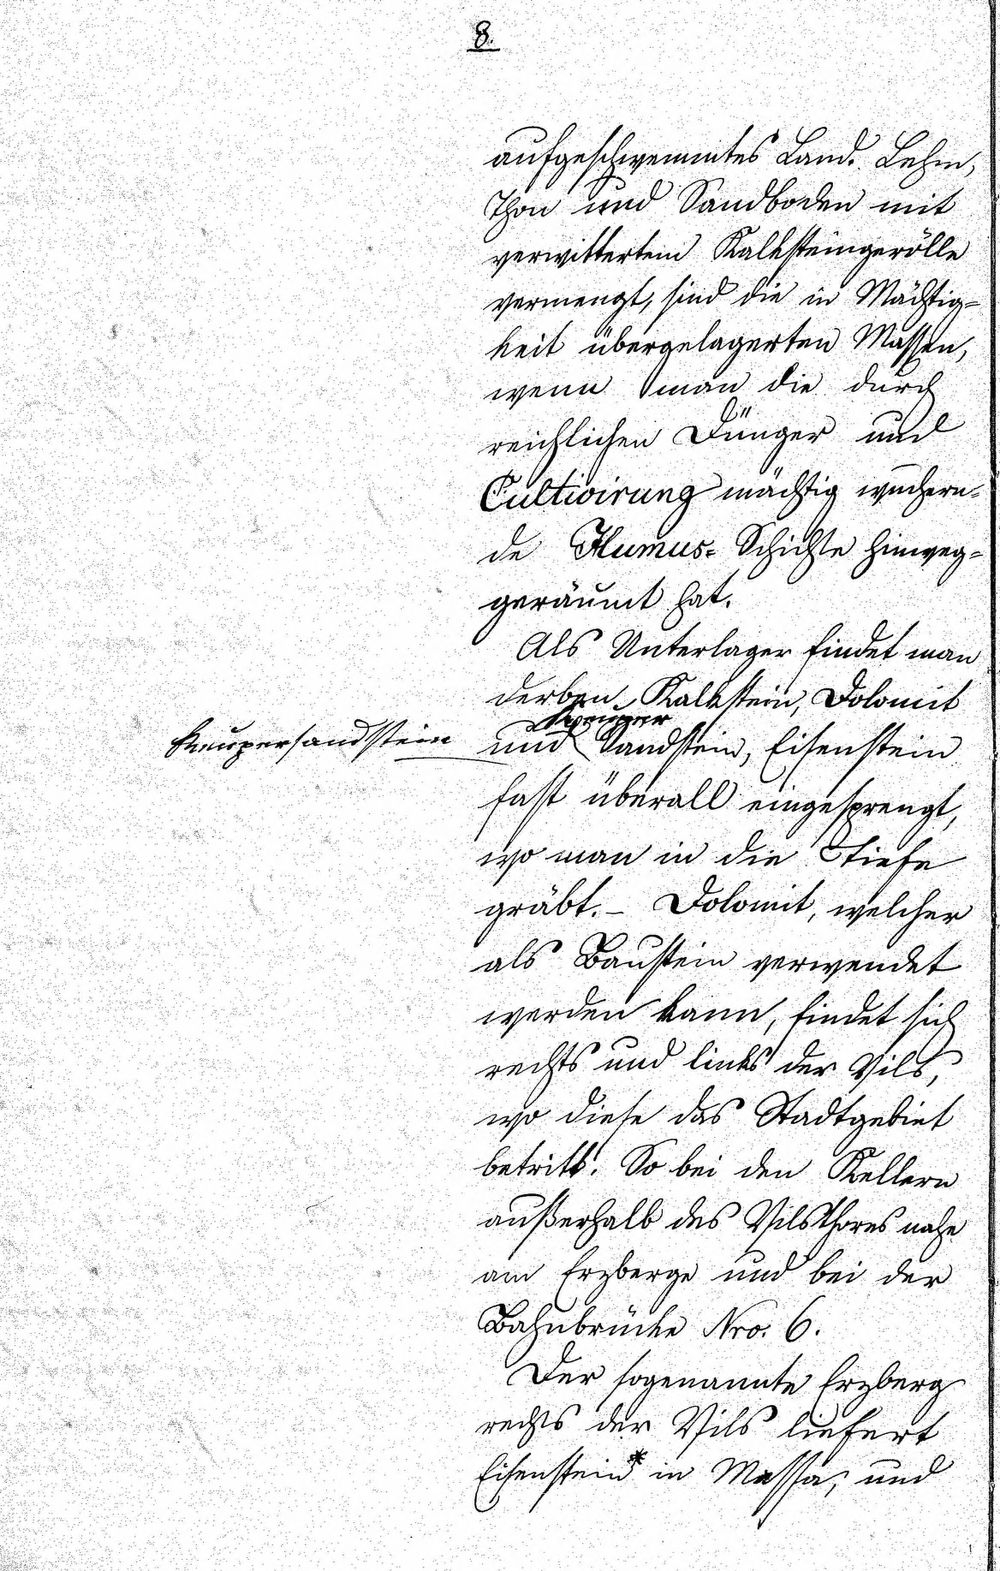 8.
aufgeschwemmtes Land. Lehm,
Thon und Sandboden mit
verwittertem Kalksteingerölle
vermengt, sind die in Mächtig-
keit übergelagerten Massen,
wenn man die durch
reichlichen Dünger und
Cultivirung mächtig wuchern-
de Humus-Schichte hinweg-
geräumt hat.
Als Unterlager findet man
derben Kalkstein, Dolomit
Keupersandstein
und Sandstein, Eisenstein
fast überall eingesprengt,
wo man in die Tiefe
gräbt. – Dolomit, welcher
als Baustein verwendet
werden kann, findet sich
rechts und links der Vils,
wo diese das Stadtgebiet
betritt. So bei den Kellern
außerhalb des Vilsthores nahe
am Erzberge und bei der
Bahnbrücke Nro. 6.
Der sogenannte Erzberg
rechts der Vils liefert
Eisenstein* in Massa, und